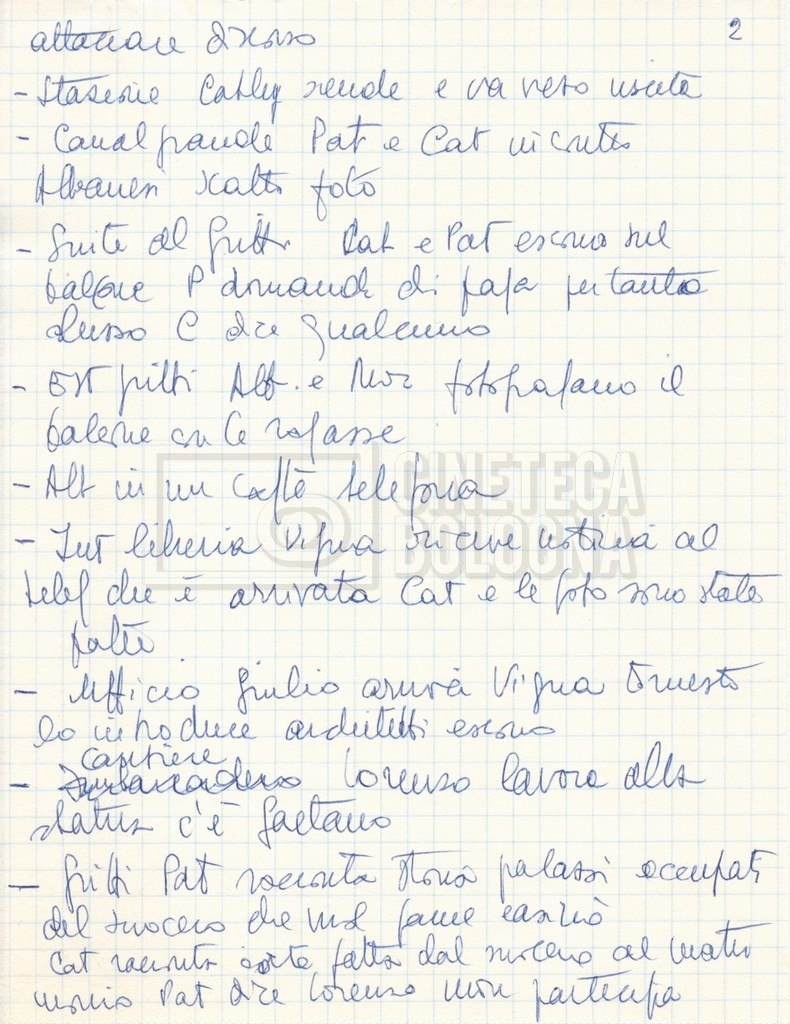 2
attaccare discorso
- Stazione Cathy scende e va verso uscita
- Canal grande Pat e Cat incontro
Albanesi scatta foto
- Suite al Gritti Cat e Pat escono sul
balcone P domanda chi paga per tanto
lusso C dice qualcuno
- EST gritti Alb. e Mor fotografano il
balcone con le ragazze
- Alb in un caffè telefona
- Int libreria Vigna riceve notizia al
telef che è arrivata Cat e le foto sono state
fatte
- Ufficio Giulio arriva Vigna Ernesto
lo introduce architetti escono
cantiere
- Lorenzo lavora alla
statua c'è Gaetano
- Gritti Pat racconta storia palazzi occupati
del suocero che vuol farne casinò
Cat racconta fatta dal suocero al matri
monio Pat dice Lorenzo non partecipa
CINETECA
BOLOGNA